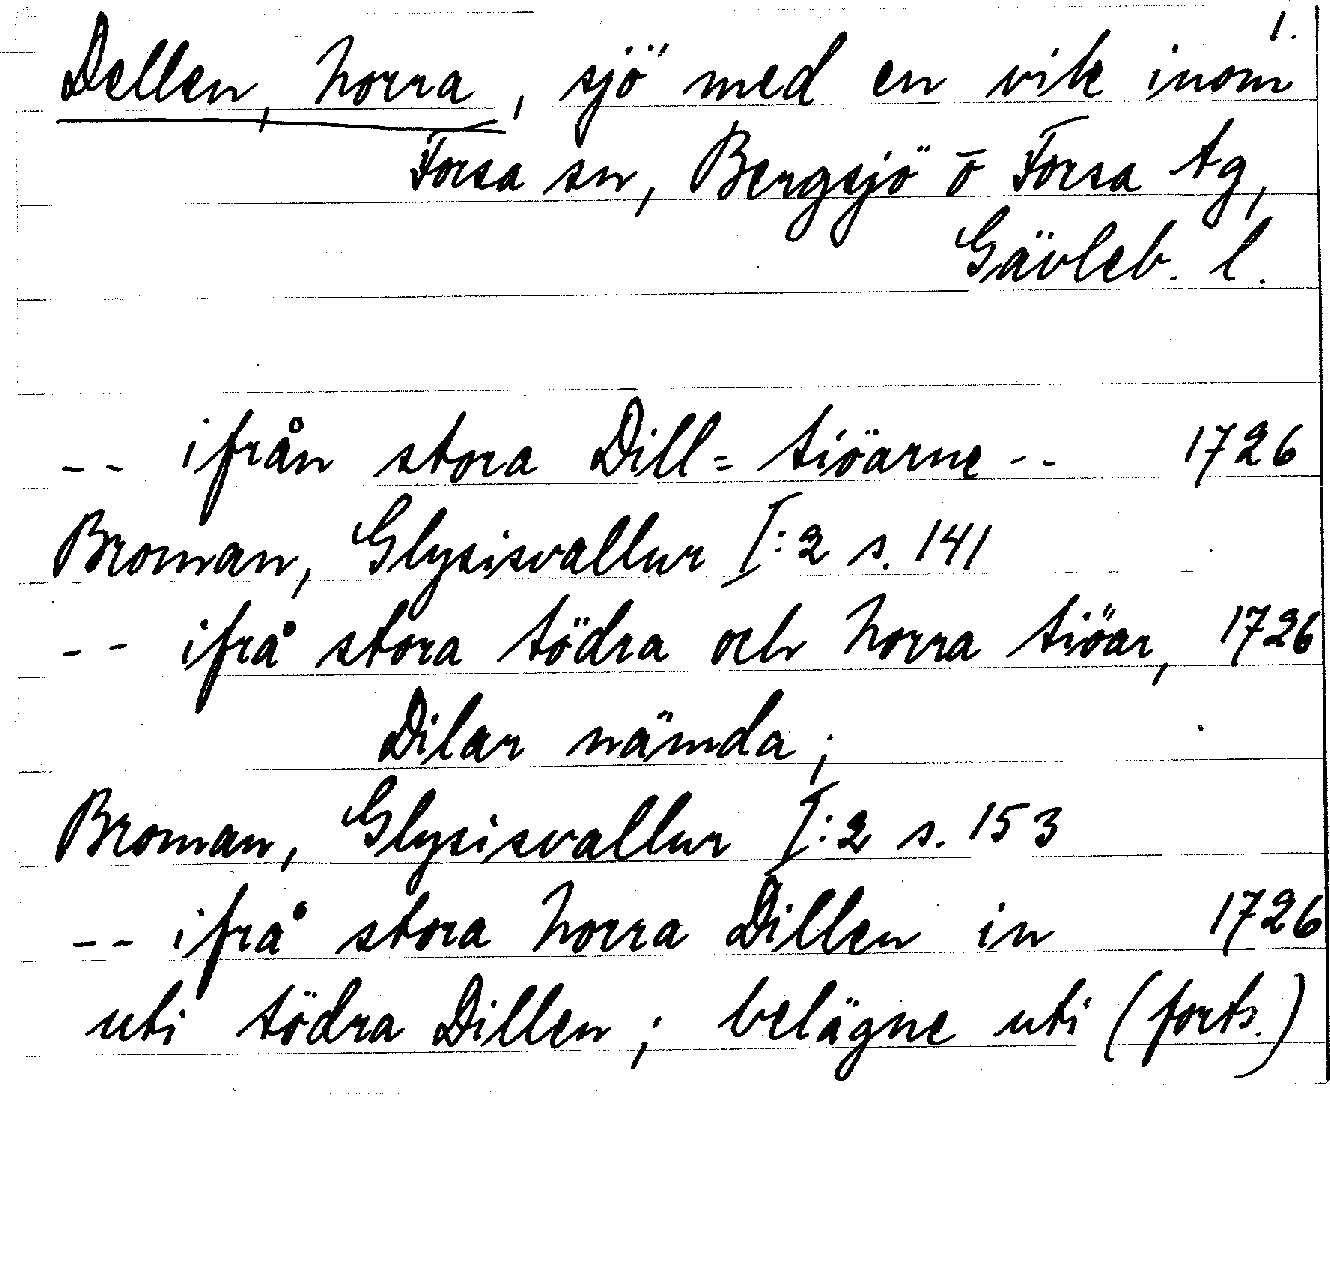 1.
Dellen, Norra, sjö med en vik inom
Forsa sn, Bergsjö o̅ Forsa tg,
Gävleb. l.
-- ifrån stora Dill= siöarne -- 1726
Broman, Glysisvallur I:2 s. 141
-- ifrå stora södra och norra siöar, 1726
Dilar nämda;
Broman, Glysisvallur I:2 s. 153
-- ifrå stora norra Dillen in 1726
uti södra Dillen; belägne uti (forts.)